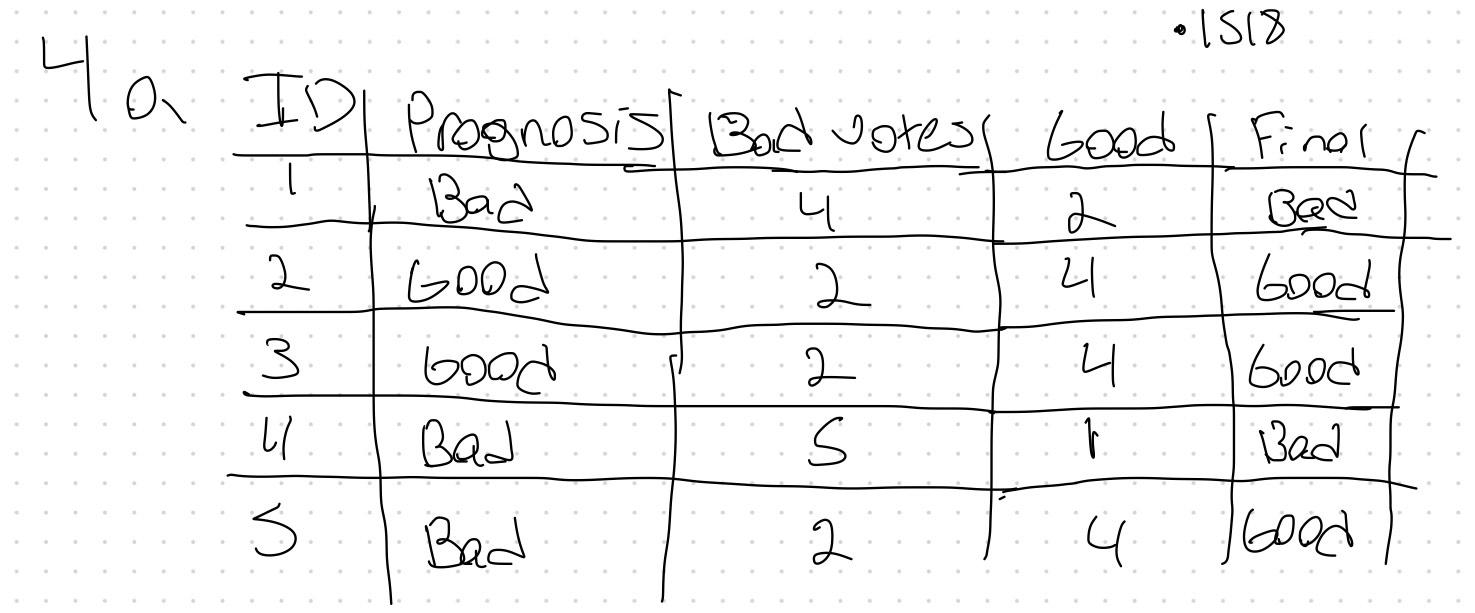 .1518
4a
ID Prognosis Bad votes Good Final
1 Bad 4 2 Bad
2 Good 2 4 Good
3 Good 2 4 Good
4 Bad 5 1 Bad
5 Bad 2 4 Good